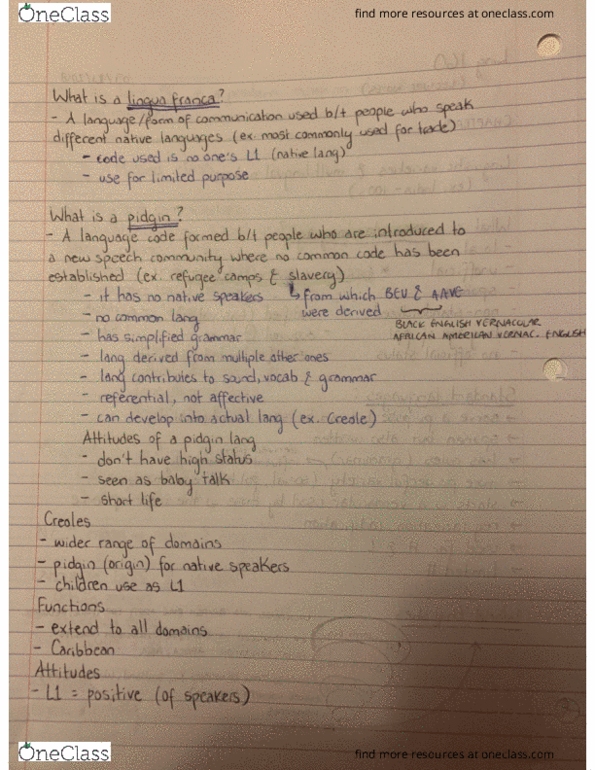 OneClass
find more resources at oneclass.com
What is a lingua franca?
- A language/form of communication used b/t people who speak
different native languages (ex. most commonly used for trade)
- code used is no one's L1 (native lang)
- use for limited purpose
What is a pidgin?
- A language code formed b/t people who are introduced to
a new speech community where no common code has been
established (ex. refugee camps & slavery)
- it has no native speakers
↳ from which BEV & AAVE
- no common lang
were derived
BLACK ENGLISH VERNACULAR
- has simplified grammar
AFRICAN AMERICAN VERNAC. ENGLISH
- lang derived from multiple other ones
- lang contributes to sound, vocab & grammar
- referential, not affective
- can develop into actual lang (ex. Creole)
Attitudes of a pidgin lang
- don't have high status
- seen as baby talk
- short life
Creoles
- wider range of domains
- pidgin (origin) for native speakers
- children use as L1
Functions
- extend to all domains
- Caribbean
Attitudes
- L1 = positive (of speakers)
OneClass
find more resources at oneclass.com